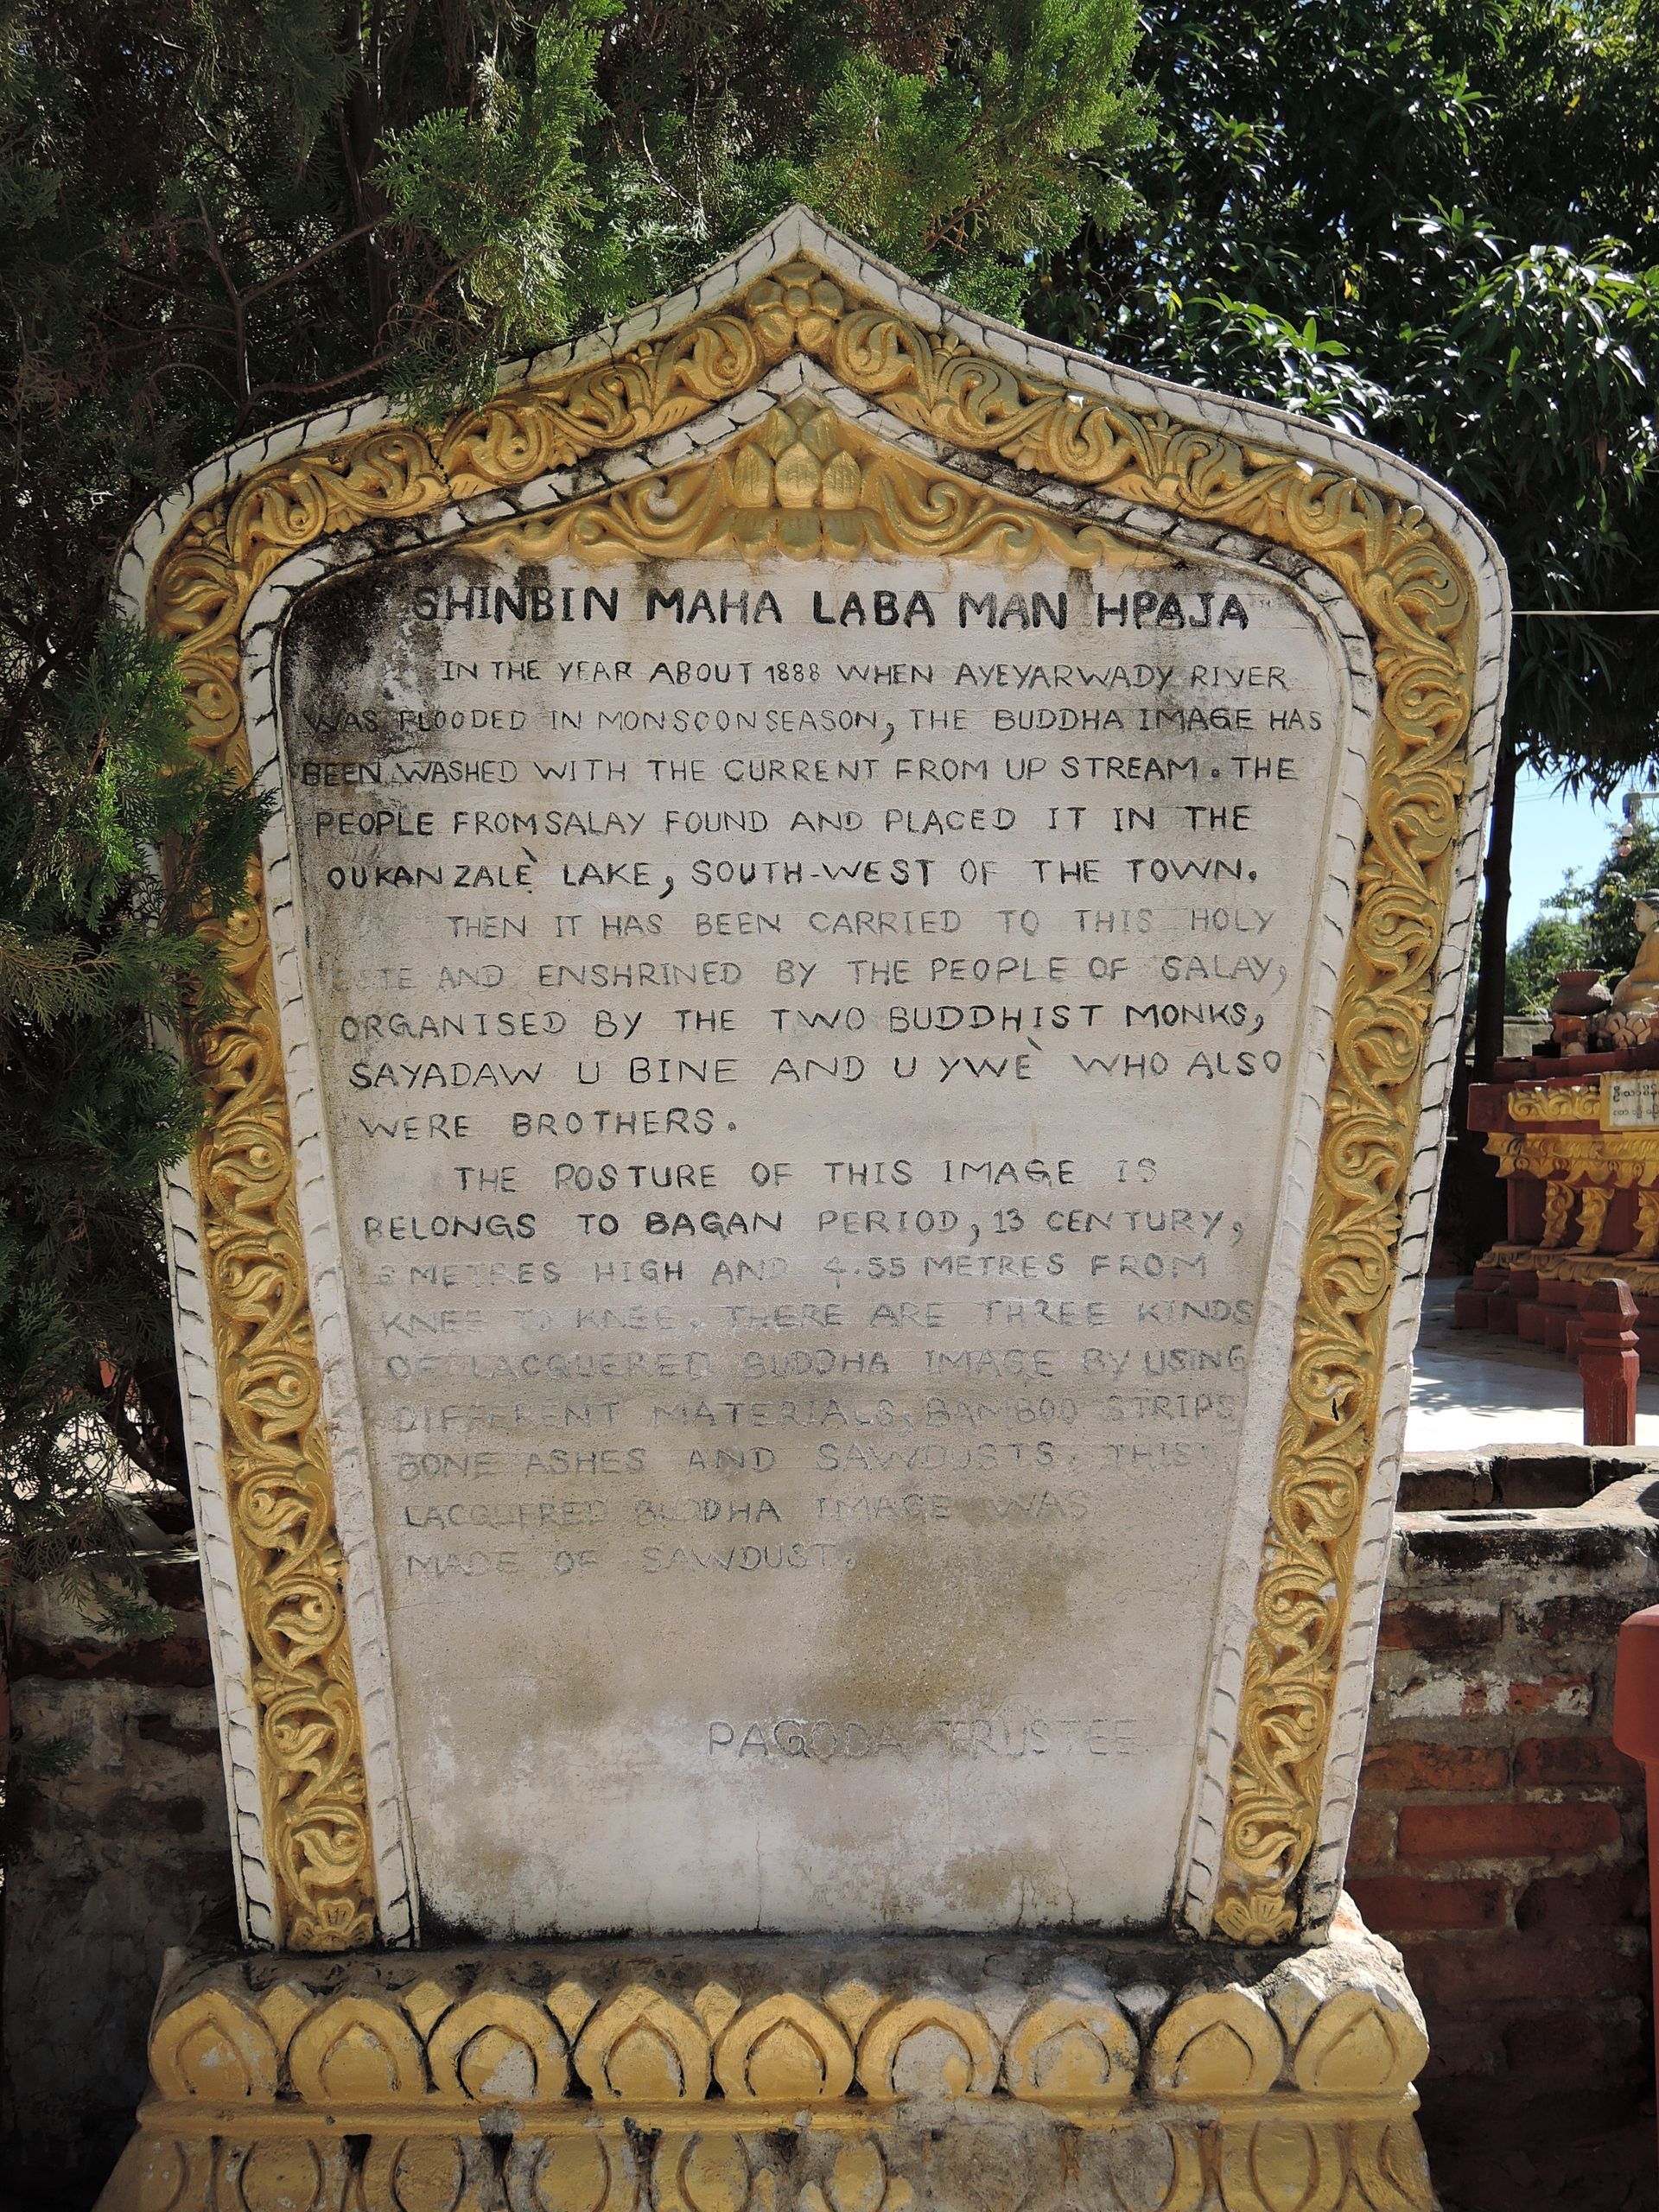 SHINBIN MAHA LABA MAN HPAJA
IN THE YEAR ABOUT 1888 WHEN AYEYARWADY RIVER
WAS FLOODED IN MONSOON SEASON, THE BUDDHA IMAGE HAS
BEEN WASHED WITH THE CURRENT FROM UP STREAM. THE
PEOPLE FROM SALAY FOUND AND PLACED IT IN THE
OUKAN ZALÈ LAKE, SOUTH-WEST OF THE TOWN.
THEN IT HAS BEEN CARRIED TO THIS HOLY
AND ENSHRINED BY THE PEOPLE OF SALAY,
ORGANISED BY THE TWO BUDDHIST MONKS,
SAYADAW U BINE AND U YWÈ WHO ALSO
WERE BROTHERS.
THE POSTURE OF THIS IMAGE IS
BELONGS TO BAGAN PERIOD, 13 CENTURY,
METRES HIGH AND 4.55 METRES FROM
KNEE TO KNEE. THERE ARE THREE KINDS
OF LACQUERED BUDDHA IMAGE BY USING
DIFFERENT MATERIALS, BAMBOO STRIPS
BONE ASHES AND SAWDUSTS. THIS
LACQUERED BUDDHA IMAGE WAS
MADE OF SAWDUST.
PAGODA TRUSTEE